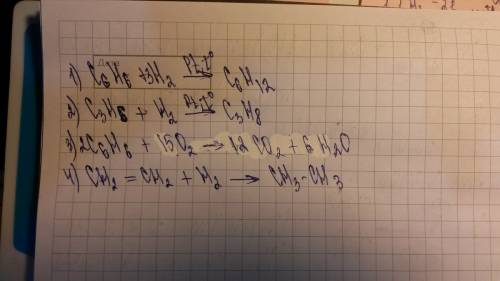 1) C₆H₆ + 3H₂ →(Pt, t°) C₆H₁₂
2) C₃H₆ + H₂ →(Pt, t°) C₃H₈
3) 2C₆H₆ + 15O₂ → 12CO₂ + 6H₂O
4) CH₂ = CH₂ + H₂ → CH₃-CH₃